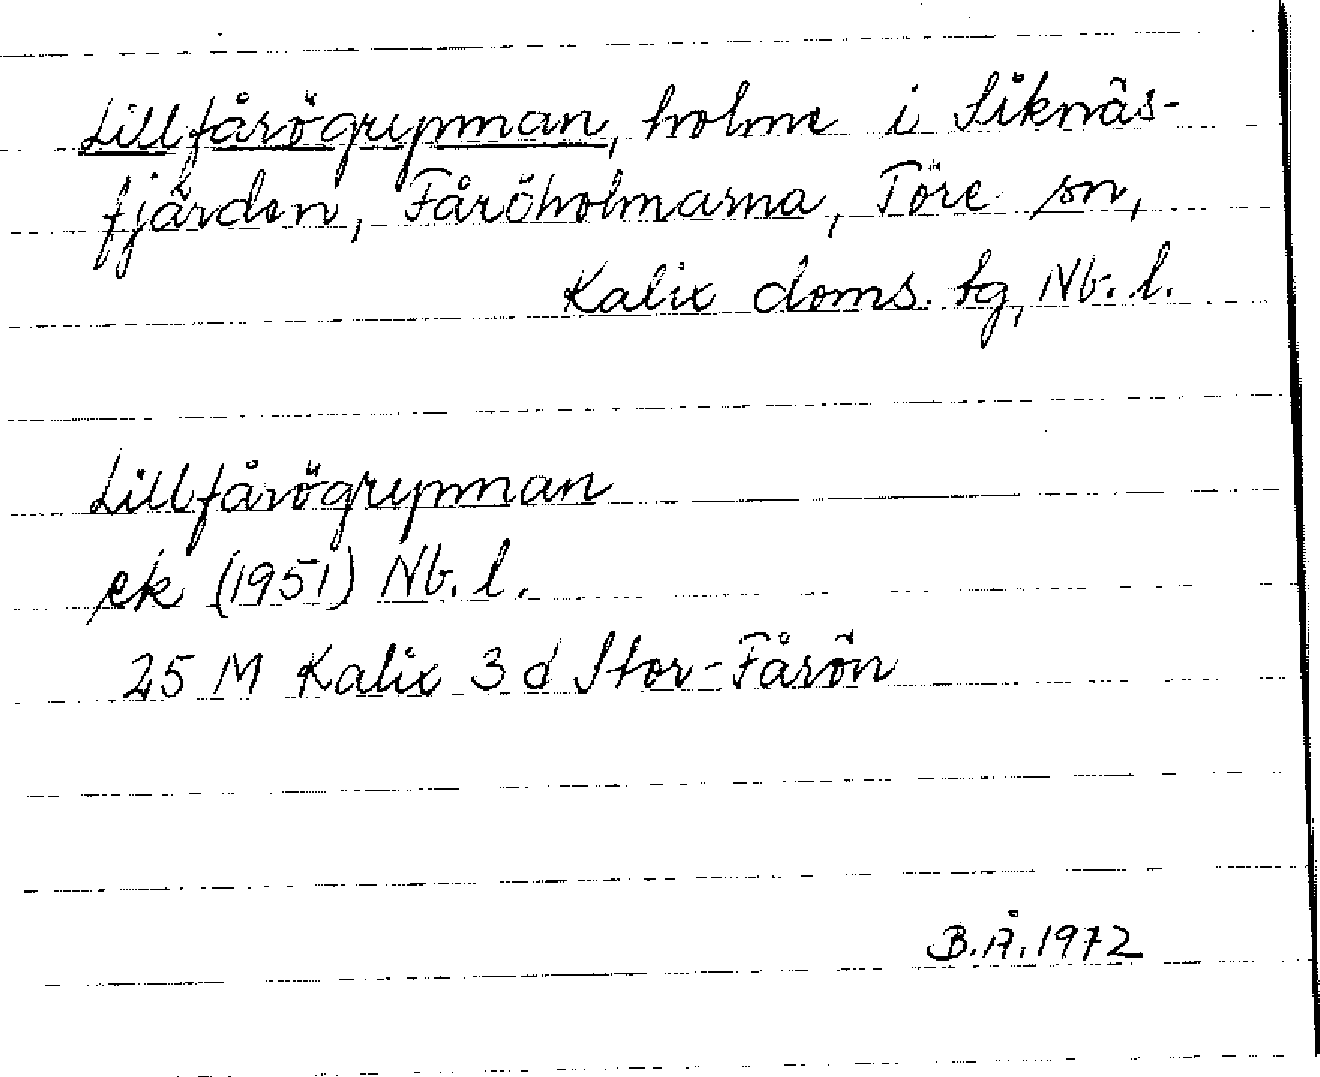 Lillfårögrynnan, holme i Siknäs-
fjärden, Fåröholmarna, Töre sn,
Kalix doms. tg, Nb. l.
Lillfårögrynnan
ek (1951) Nb. l.
25 M Kalix 3 d Stor-Fårön
B.Å. 1972